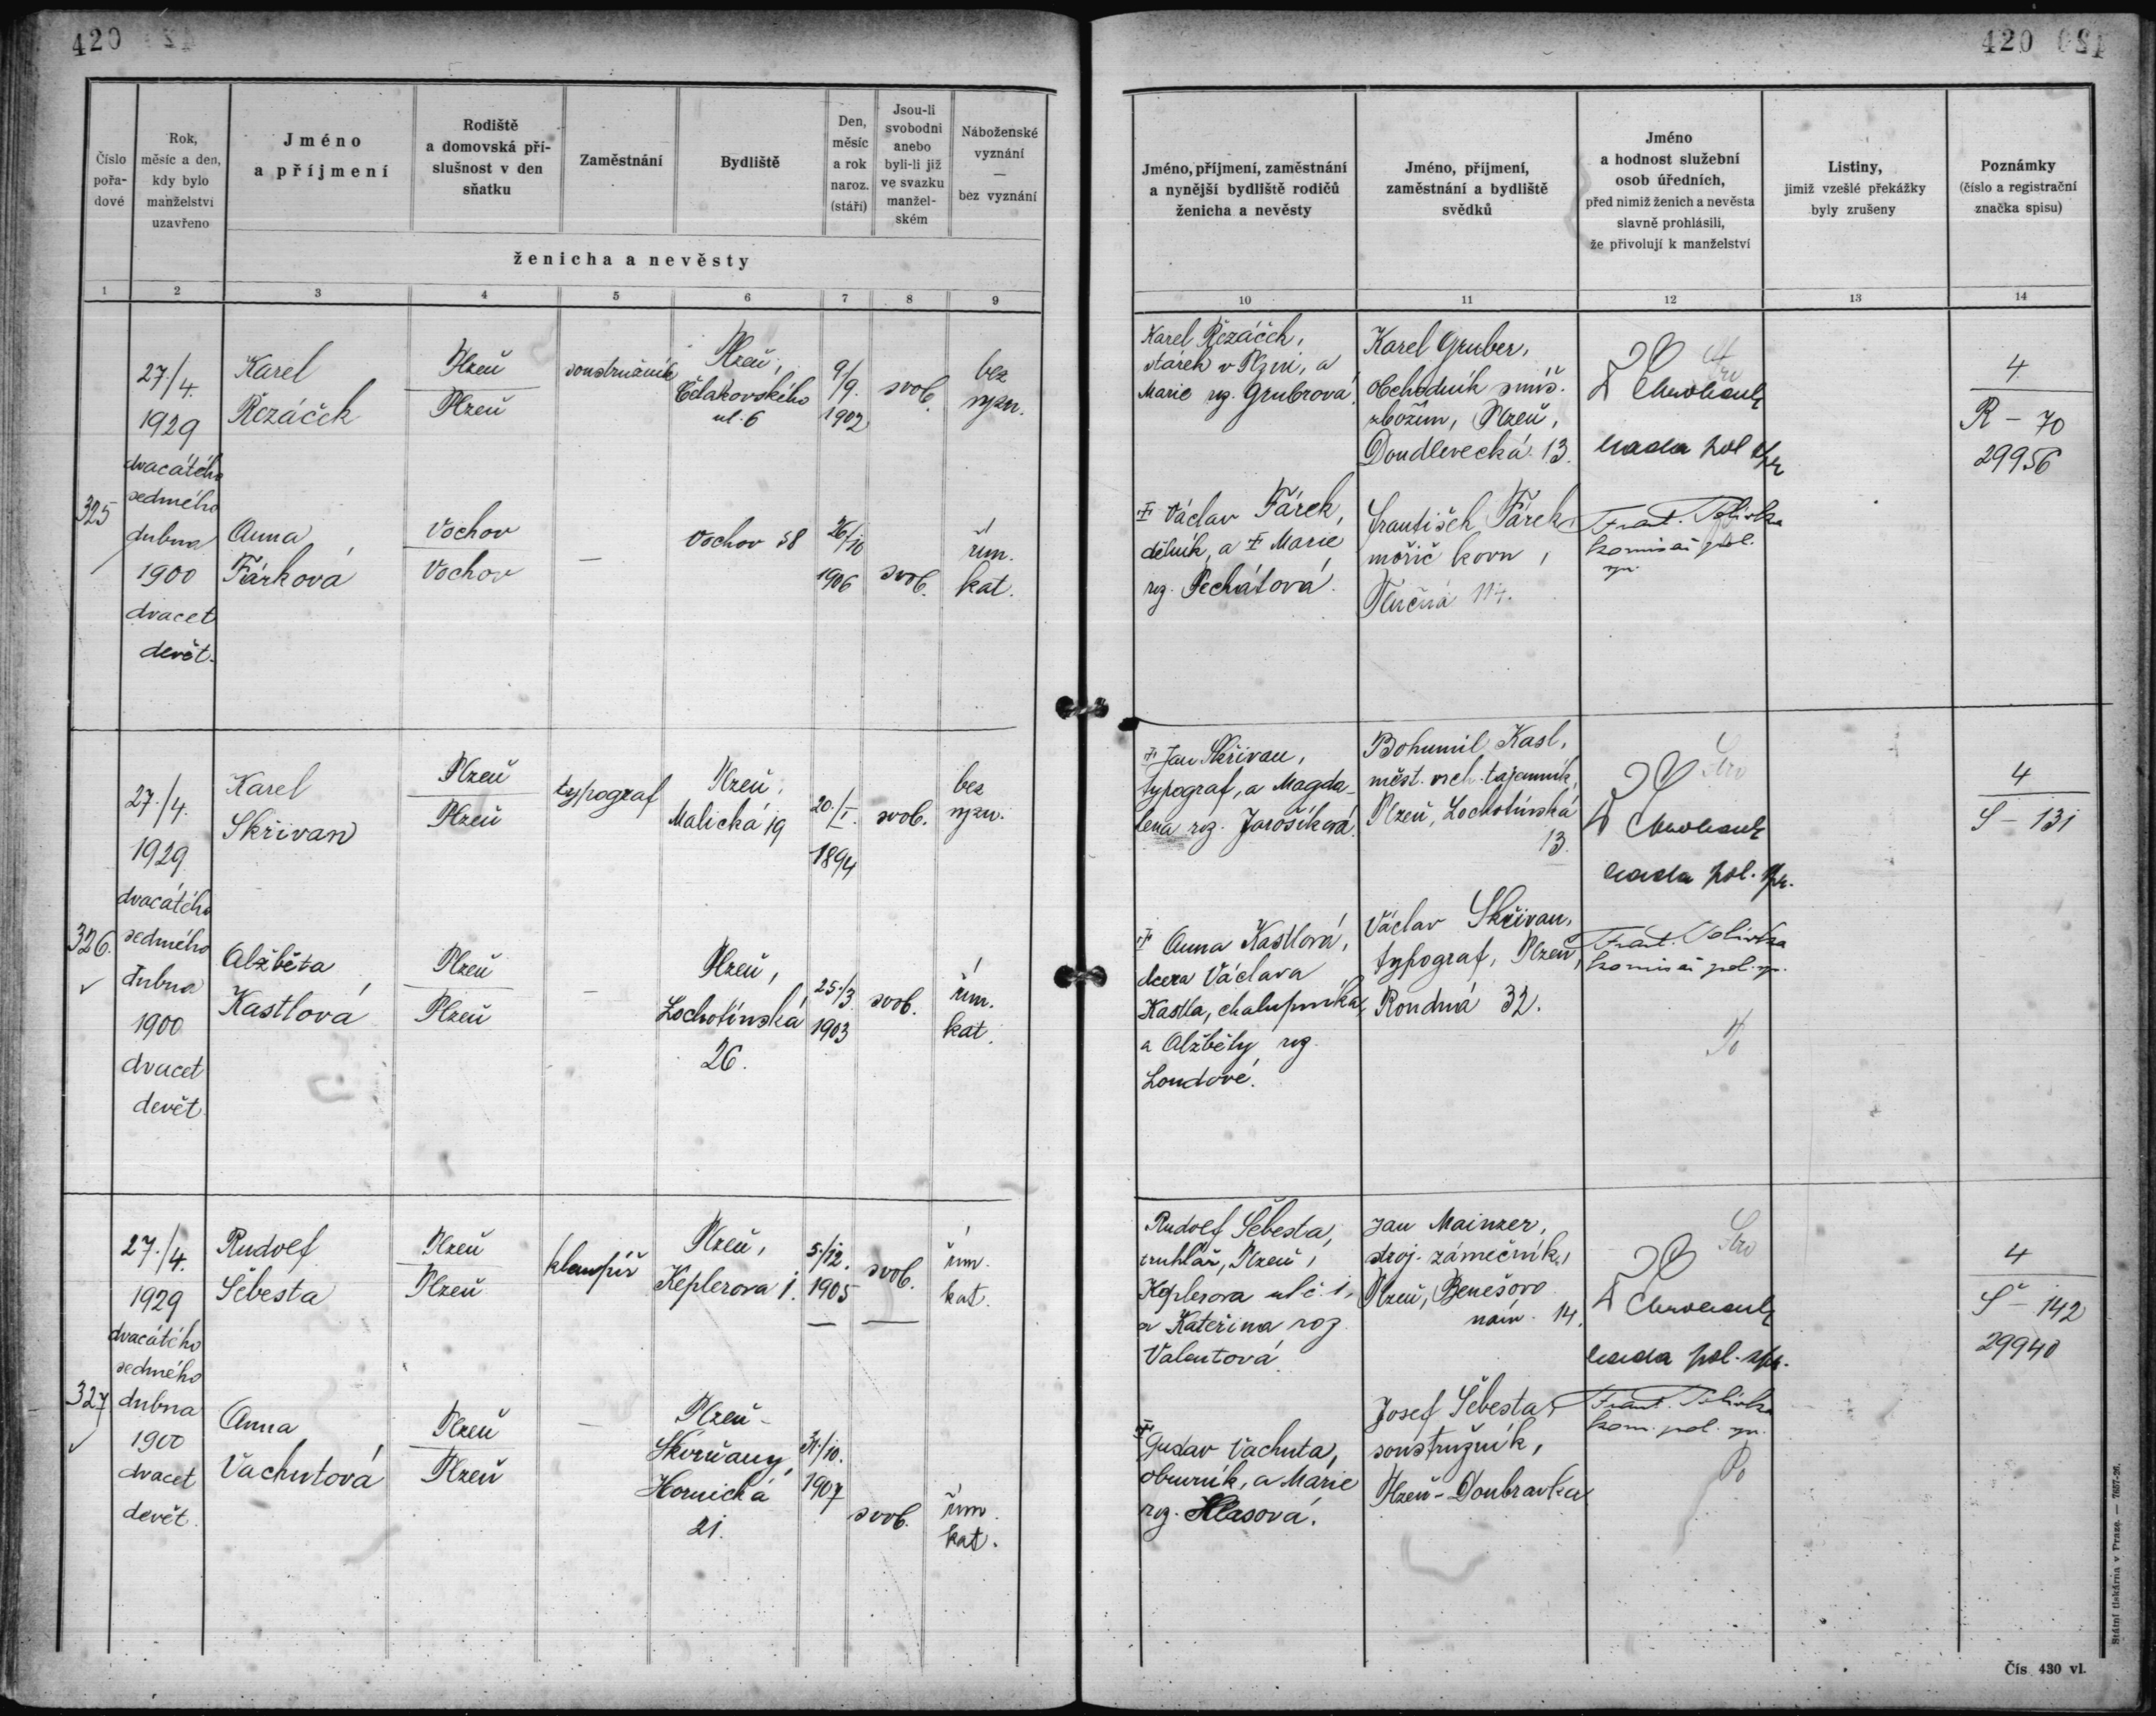 420
420
Číslo
pořa-
dové
Rok,
měsíc a den,
kdy bylo
manželství
uzavřeno
Jméno
a příjmení
Rodiště
a domovská pří-
slušnost v den
sňatku
Zaměstnání
Bydliště
Den,
měsíc
a rok
naroz.
(stáří)
Jsou-li
svobodni
anebo
byli-li již
ve svazku
manžel-
ském
Náboženské
vyznání
—
bez vyznání
ženicha a nevěsty
1 2 3 4 5 6 7 8 9
Jméno, příjmení, zaměstnání
a nynější bydliště rodičů
ženicha a nevěsty
Jméno, příjmení,
zaměstnání a bydliště
svědků
Jméno
a hodnost služební
osob úředních,
před nimiž ženich a nevěsta
slavně prohlásili,
že přivolují k manželství
Listiny,
jimiž vzešlé překážky
byly zrušeny
Poznámky
(číslo a registrační
značka spisu)
10 11 12 13 14
325
27/4.
1929
dvacátého
sedmého
dubna
1900
dvacet
devět.
Karel
Řezáček
Plzeň
Plzeň
soustružník
Plzeň,
Čelakovského
ul. 6
9/9.
1902
svob.
bez
vyzn.
Anna
Fárková
Vochov
Vochov
—
Vochov 58
26/10
1906
svob.
řím.
kat.
Karel Řezáček,
stárek v Plzni, a
Marie roz. Grubrová.
Karel Gruber,
obchodník smíš.
zbožím, Plzeň,
Doudlevecká 13.
rada pol. spr.
4
R - 70
29956
‡ Václav Fárek,
dělník, a ‡ Marie
roz. Pechátová.
František Fárek
mořič kovu,
Tlučná 114.
Frant. Polívka
komisař pol.
spr.
326.
27./4.
1929
dvacátého
sedmého
dubna
1900
dvacet
devět
Karel
Skřivan
Plzeň
Plzeň
typograf
Plzeň,
Malická 19
20./I.
1894
svob.
bez
vyzn.
Alžběta
Kastlová
Plzeň
Plzeň
—
Plzeň,
Lochotínská
26.
25./3
1903
svob.
řím.
kat.
‡ Jan Skřivan,
typograf, a Magda-
lena roz. Jarošíková.
Bohumil Kasl,
měst. vrch. tajemník,
Plzeň, Lochotínská
13.
rada pol. spr.
4
S - 131
‡ Anna Kastlová,
dcera Václava
Kastla, chalupníka,
a Alžběty roz.
Loudové.
Václav Skřivan,
typograf, Plzeň,
Rondná 32.
Frant. Polívka
komisař pol. spr.
Po
327
27./4.
1929
dvacátého
sedmého
dubna
1900
dvacet
devět.
Rudolf
Šebesta
Plzeň
Plzeň
klempíř
Plzeň,
Keplerova 1.
5./12.
1905
svob.
řím.
kat.
Anna
Vachutová
Plzeň
Plzeň
—
Plzeň-
Skvrňany,
Hornická
21.
31./10.
1907
svob.
řím.
kat.
Rudolf Šebesta,
truhlář, Plzeň,
Keplerova ul č. 1,
a Kateřina roz.
Valentová
Jan Mainzer,
stroj. zámečník,
Plzeň, Benešovo
nám. 14.
rada pol. spr.
4
Š - 142
29940
‡ Gustav Vachuta,
obuvník, a Marie
roz. Hlasová.
Josef Šebesta
soustružník,
Plzeň-Doubravka
Frant. Polívka
kom. pol. spr.
Po
Státní tiskárna v Praze. — 7657-26.
Čís. 430 vl.